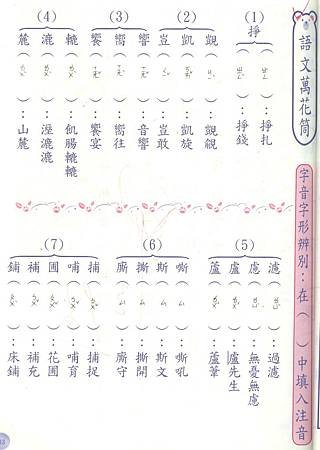 語文萬花筒
字音字形辨別：在（ ）中填入注音
(1)
掙（ ）：掙扎
（ ）：掙錢
(2)
覬（ ）：覬覦
凱（ ）：凱旋
豈（ ）：豈敢
(3)
響（ ）：音響
嚮（ ）：嚮往
饗（ ）：饗宴
(4)
轆（ ）：飢腸轆轆
漉（ ）：溼漉漉
麓（ ）：山麓
(5)
濾（ ）：過濾
慮（ ）：無憂無慮
盧（ ）：盧先生
蘆（ ）：蘆葦
(6)
嘶（ ）：嘶吼
斯（ ）：斯文
撕（ ）：撕開
廝（ ）：廝守
(7)
捕（ ）：捕捉
哺（ ）：哺育
圃（ ）：花圃
補（ ）：補充
鋪（ ）：床鋪